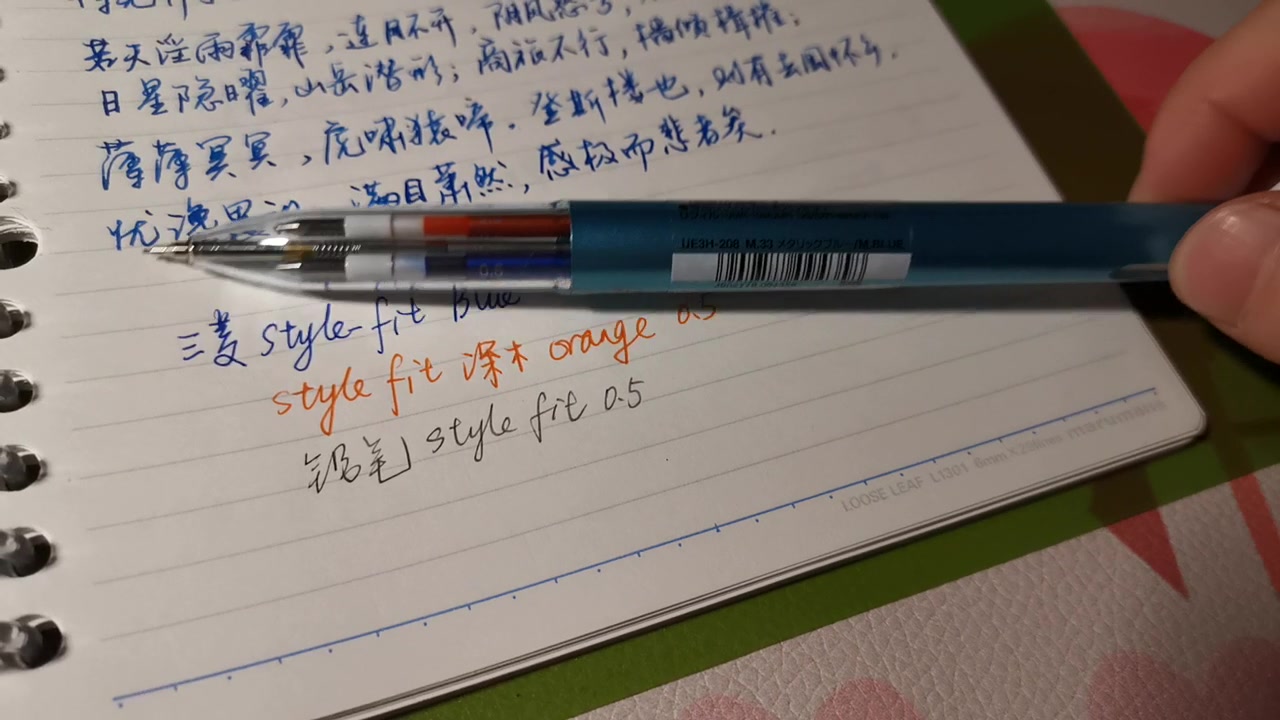 若夫淫雨霏霏，连月不开，阴风怒号，
日星隐曜，山岳潜形；商旅不行，樯倾楫摧；
薄薄冥冥，虎啸猿啼．登斯楼也，则有去国怀乡．
忧谗 满目萧然，感极而悲者矣．
UE3H-208 M.33 メタリックブルー/M.BLUE
0.5
三菱 style-fit Blue
style fit 深木 orange 0.5
铅笔 style fit 0.5
LOOSE LEAF L1301 6mm×29lines maruman